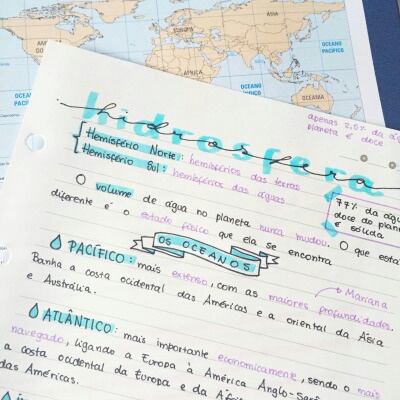 AMÉRICA DO NORTE
OCEANO PACÍFICO
EUROPA
ÁSIA
ÁFRICA
OCEANO PACÍFICO
OCEANIA
hidrosfera
apenas 2,0% da
planeta é doce
Hemisfério Norte: hemisférios das terras
Hemisfério Sul: hemisférios das águas
77% da água
doce do planeta
é sólida
O volume de água no planeta nunca mudou. O que está
diferente é o estado físico que ela se encontra
OS OCEANOS
PACÍFICO: mais extenso, com as maiores profundidades.
Mariana
Banha a costa ocidental das Américas e a oriental da Ásia
e Austrália.
ATLÂNTICO: mais importante economicamente, sendo o mais
navegado, ligando a Europa à América Anglo-
a costa ocidental da Europa e da
das Américas.